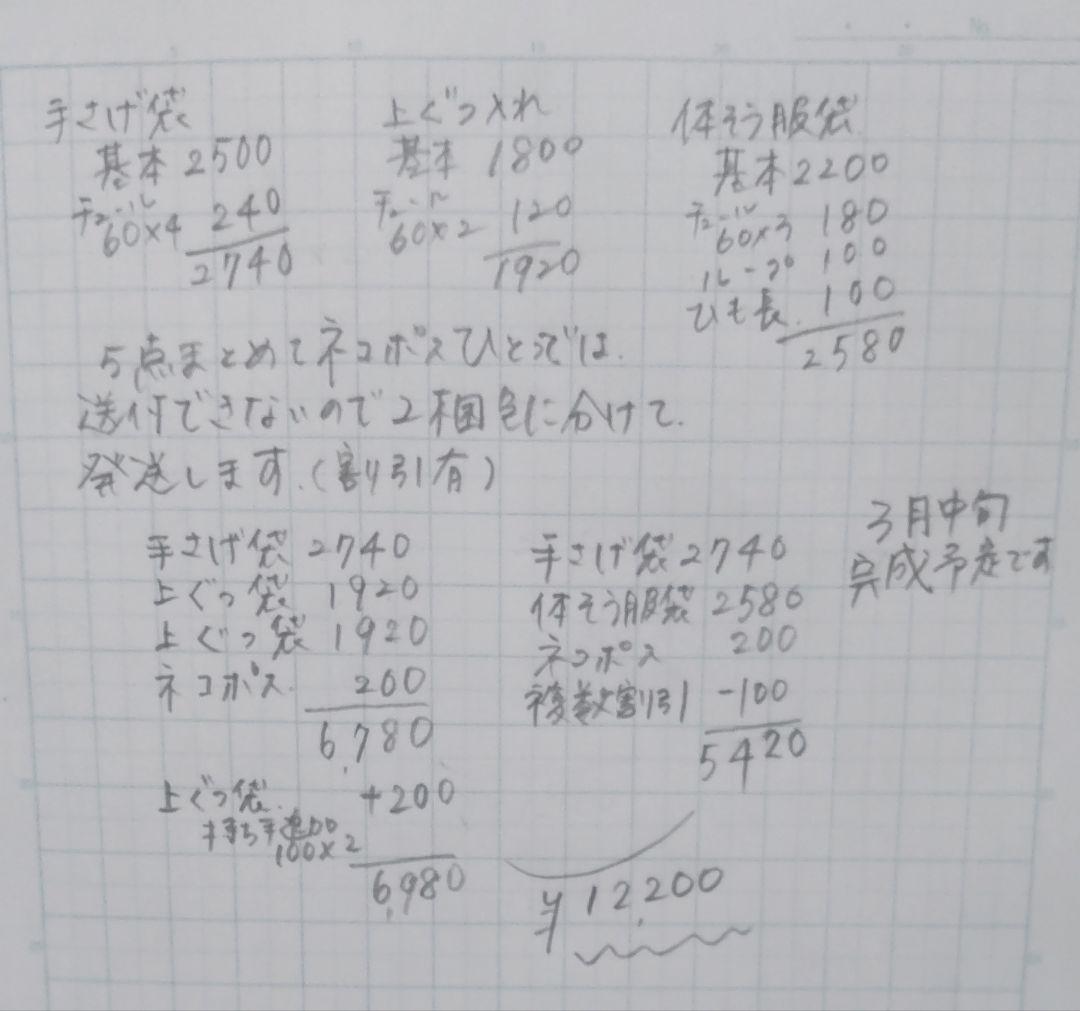 手さげ袋
基本 2500
60×4 240
2740
上ぐつ入れ
基本 1800
60×2 120
1920
体そう服袋
基本 2200
60×3 180
ループ 100
ひも長. 100
2580
5点まとめてネコポスひとつでは.
送付できないので2梱包に分けて.
発送します.(割り引有)
3月中旬
完成予定です
手さげ袋 2740
上ぐつ袋 1920
上ぐつ袋 1920
ネコポス 200
6,780
上ぐつ袋. +200
持ち手
100×2
6,980
手さげ袋 2740
体そう服袋 2580
ネコポス 200
複数割り引 -100
5420
¥12,200